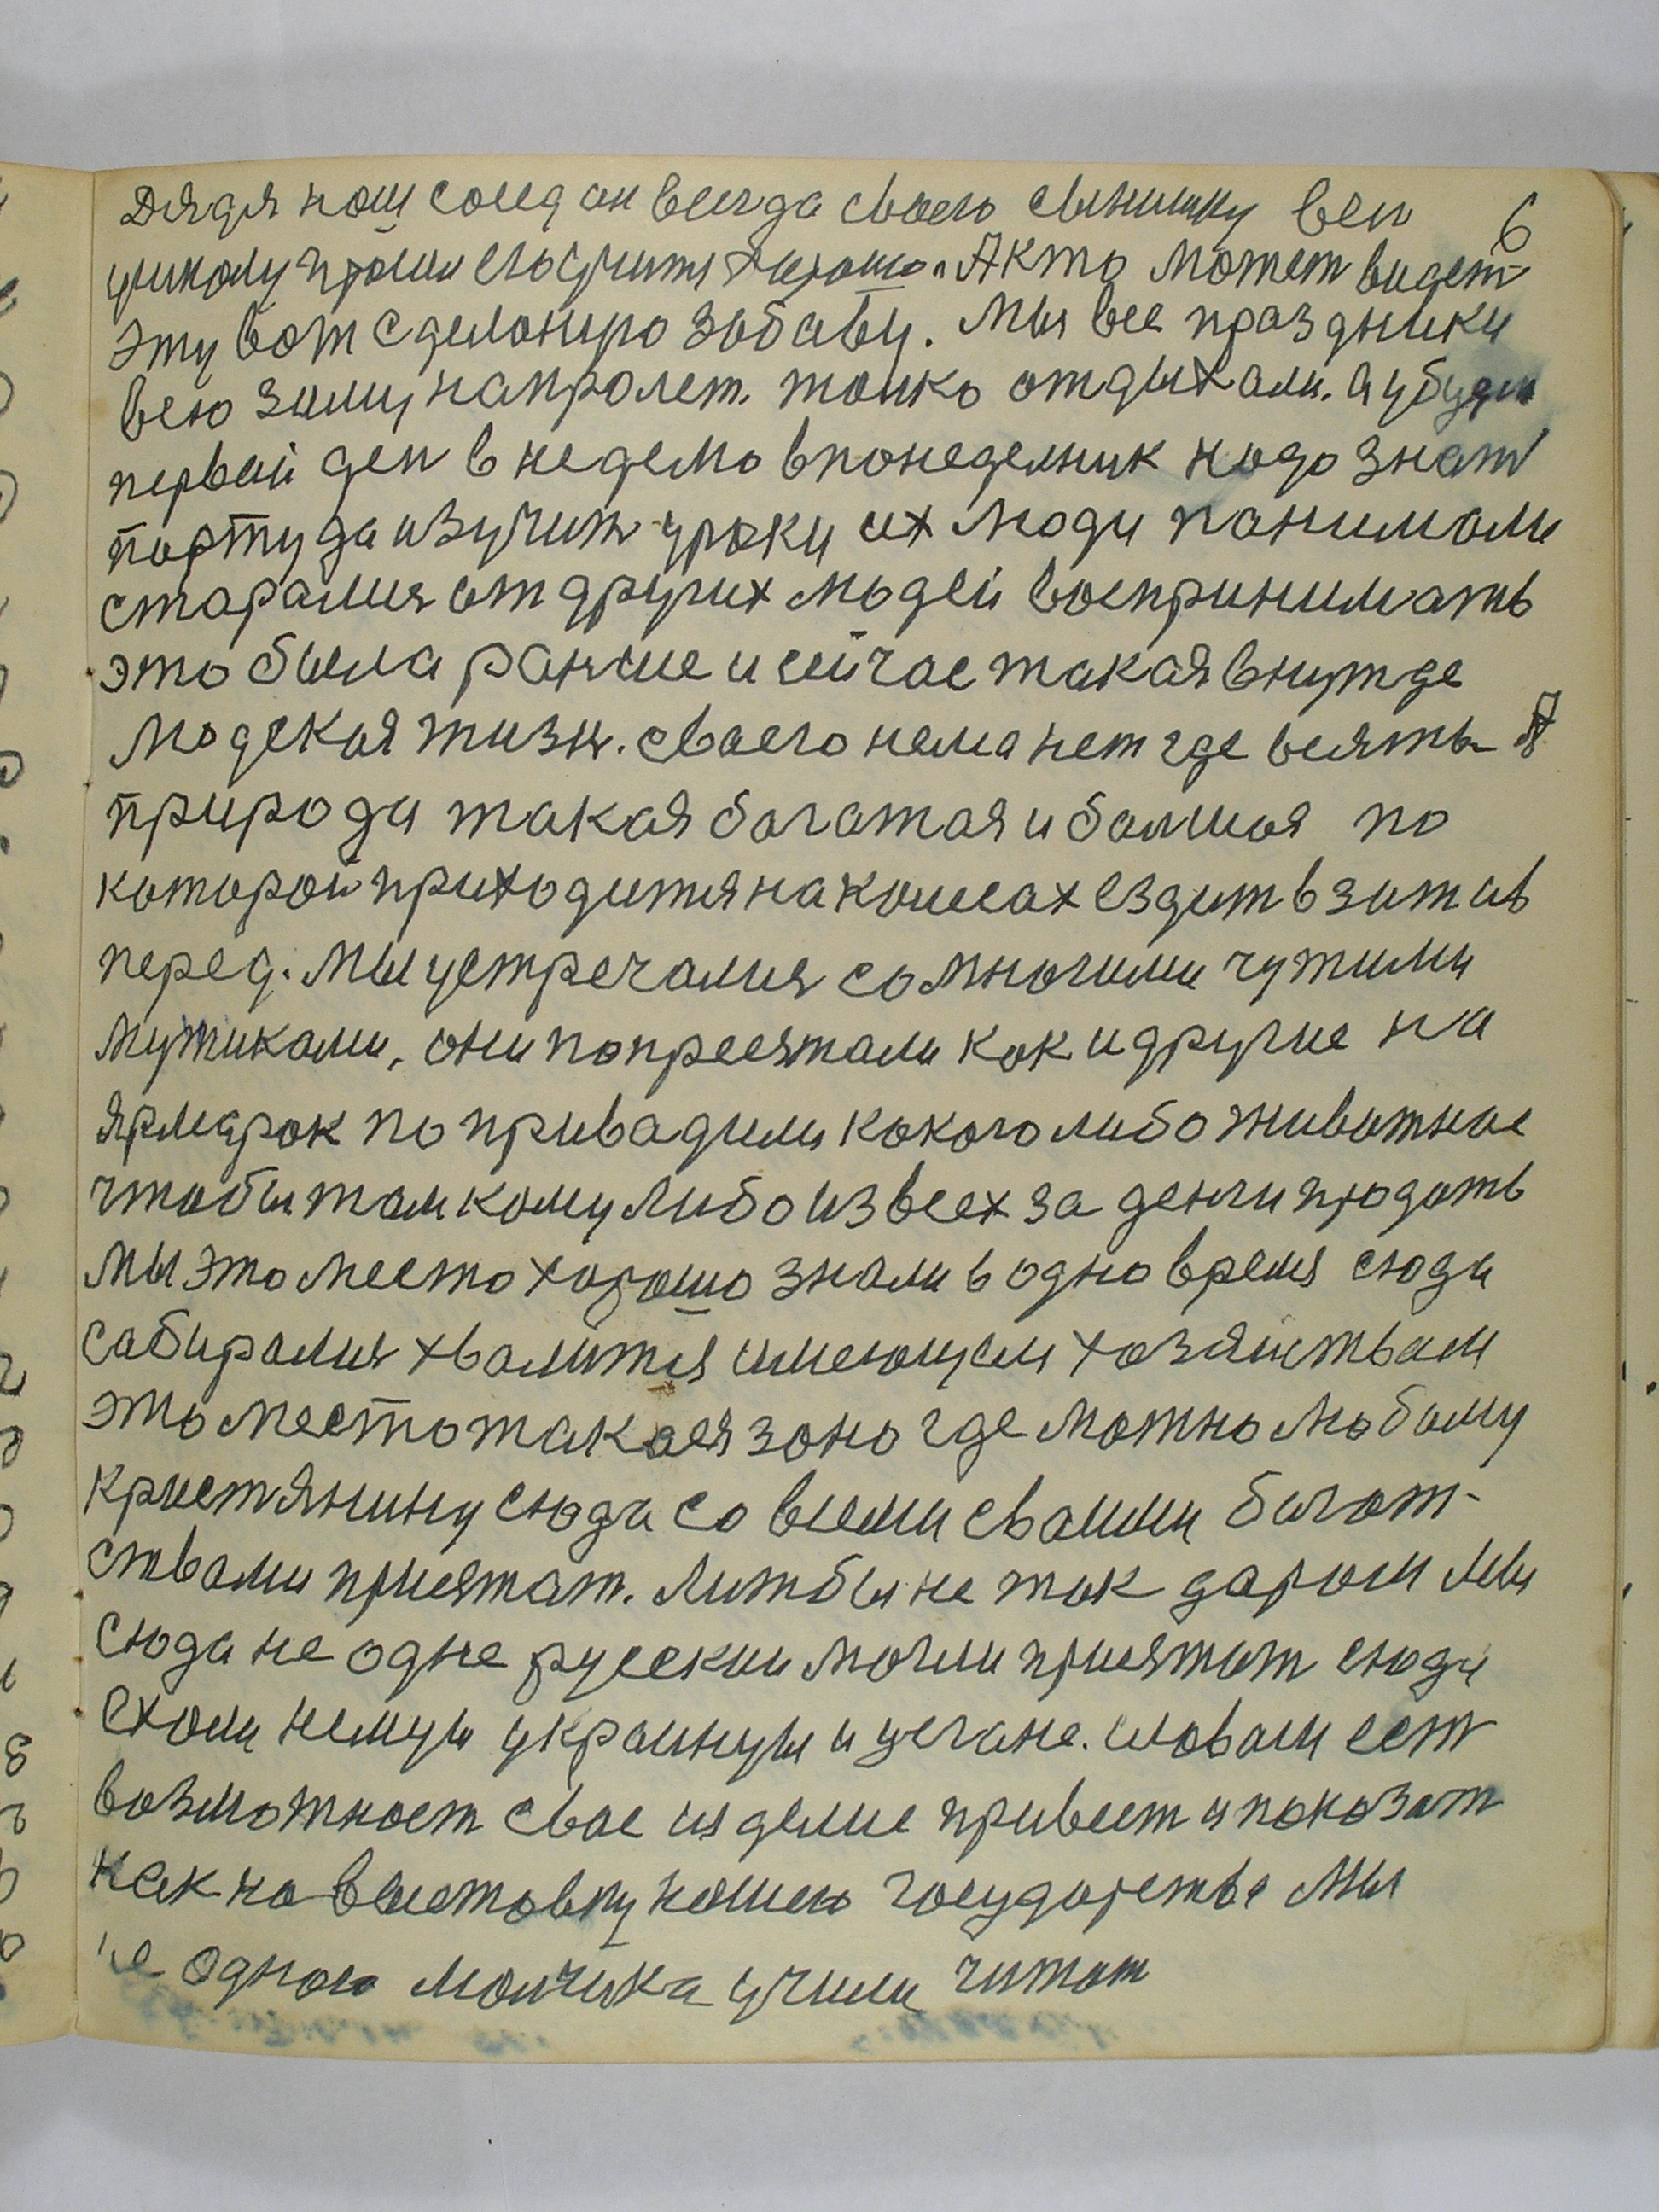 6
Дядя наш сосед он всегда своего сынишку вел
у школу просил его учитя хорошо. А кто может видет
эту вот сделонуро забаву. Мы все праздники
всю зиму напролет. толко отдыхали. а у будни
первой ден в неделю в понеделник надо знат
парту да изучит уроки их люди понимали
старалися от других людей воспринимать
это была ранше и сейчас такая в нужде
людская жизн. своего нема нет где всять А
природа такая богатая и болшоя по
которой приходится на колесах ездит взат ив
перед. Мы устречалися со многими чужими
мужиками, они поприезжали как и другие на
ярмарок по привадили какого либо животное
чтобы там кому либо из всех за денги продать
мы это место хорошо знали в одно время сюда
сабиралися хвалится имеющем хозяйствам
это место такоея зона где можно любому
кристянину сюда со всеми сваими богат-
ствами приежат. Лиж бы не так даром мы
сюда не одне русскии могли приежат сюда
ехали немцы украинцы и цегане. словам ест
возможност свае изделие привест и показат
как на выставку нашего государства мы
не одного малчика учили читат